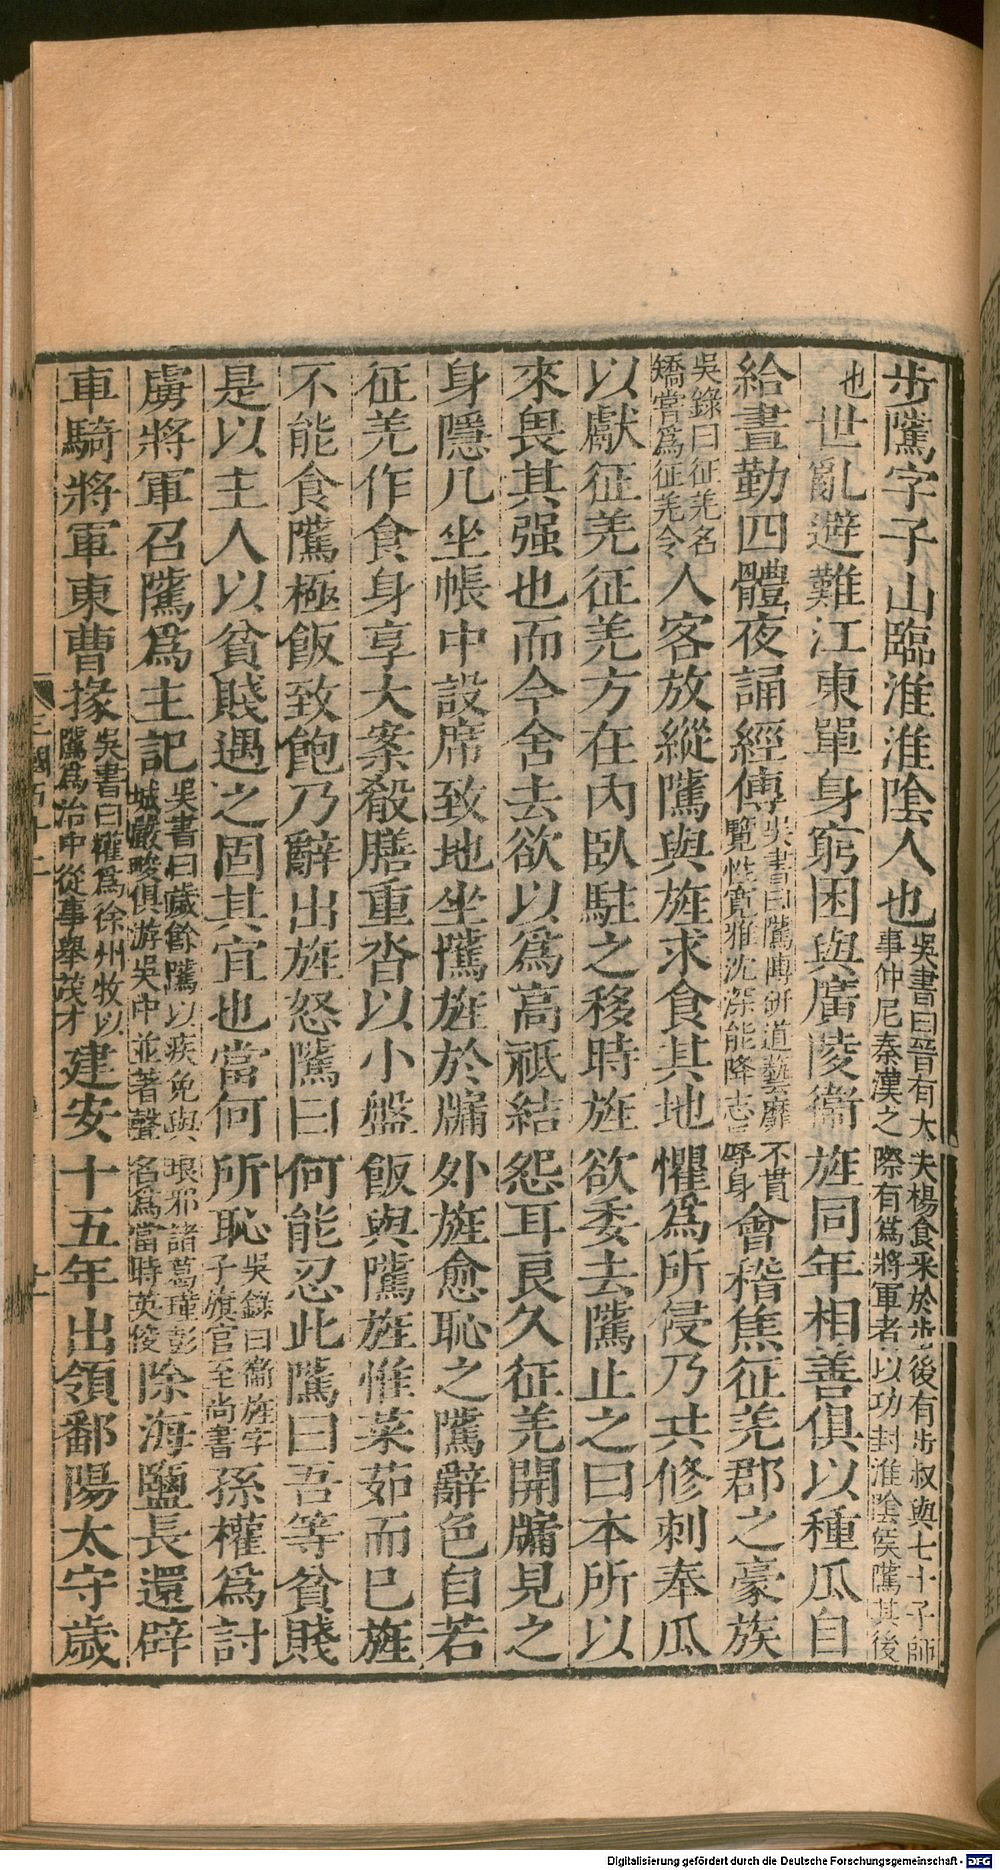 步騭字子山臨淮淮陰人也吳書曰晉有大夫楊食采於步後有步叔與七十子師事仲尼秦漢之際有爲將軍者以功封淮陰矦騭其後
也世亂避難江東單身窮困與廣陵衞旌同年相善俱以種瓜自
給晝勤四體夜誦經傳吳書曰騭博研道藝靡不貫覽性寬雅沈深能降志辱身會稽焦征羌郡之豪族
吳錄曰征羌名矯嘗爲征羌令人客放縱騭與旌求食其地懼爲所侵乃共修刺奉瓜
以獻征羌征羌方在內臥駐之移時旌欲委去騭止之曰本所以
來畏其强也而今舍去欲以爲高祗結怨耳良久征羌開牗見之
身隱几坐帳中設席致地坐騭旌於牗外旌愈恥之騭辭色自若
征羌作食身享大案殽膳重沓以小盤飯與騭旌惟菜茹而已旌
不能食騭極飯致飽乃辭出旌怒騭曰何能忍此騭曰吾等貧賤
是以主人以貧賤遇之固其宜也當何所恥吳錄曰衞旌字子旗官至尚書孫權爲討
虜將軍召騭爲主記吳書曰歲餘騭以疾免與琅邪諸葛瑾彭城嚴畯俱游吳中並著聲名爲當時英俊除海鹽長還辟
車騎將軍東曹掾吳書曰權爲徐州牧以騭爲治中從事舉茂才建安十五年出領鄱陽太守歲
三國
十一
Digitalisierung gefördert durch die Deutsche Forschungsgemeinschaft - DFG